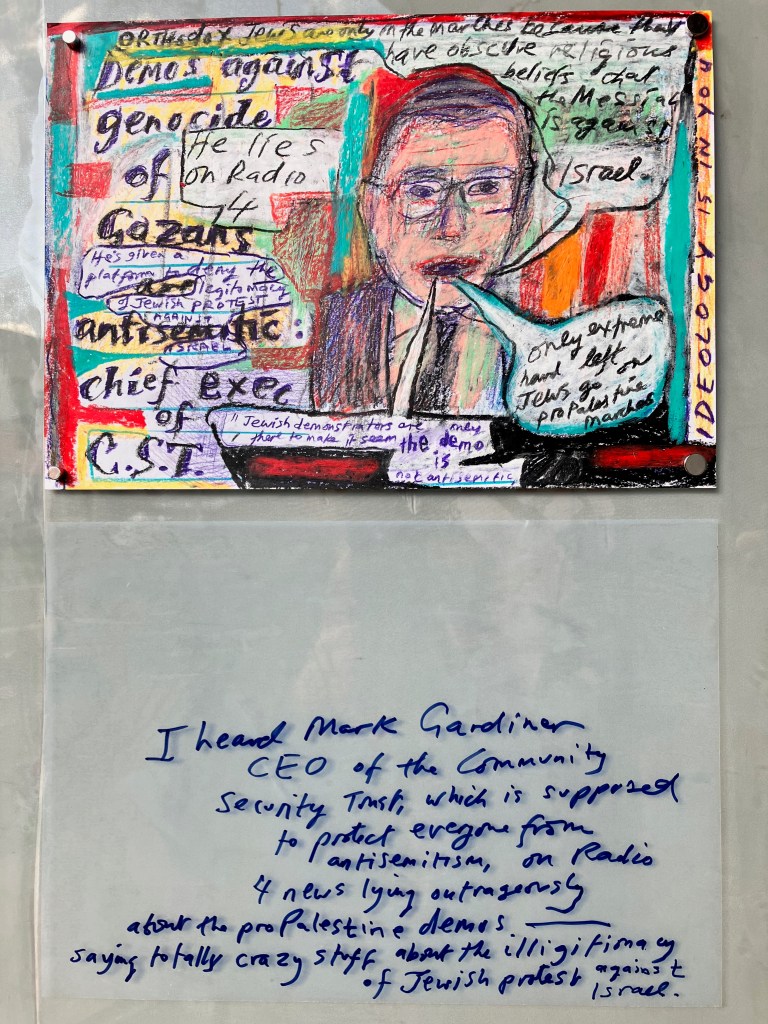 ORTHodox Jews are only in the marches because they
have obscure religious
beliefs that
the Messiah
is against
Israel.
Demos against
genocide
of
Gazans
are
antisemitic:
chief exec
of
C.S.T.
He lies
on Radio
4
He's given a
platform to deny the
legitomacy
of Jewish PROTEST
AGAINST
ISRAEL
only extreme
hard left
Jews go on
proPalestine
marches
"Jewish demonstrators are only
there to make it seem
the demo
is
not antisemitic,
IDEOLOGY IS IN YOU
I heard Mark Gardiner
CEO of the Community
Security Trust, which is supposed
to protect everyone from
antisemitism, on Radio
4 news lying outrageously
about the proPalestine demos —
saying totally crazy stuff about the illigitimacy
of Jewish protest against
Israel.